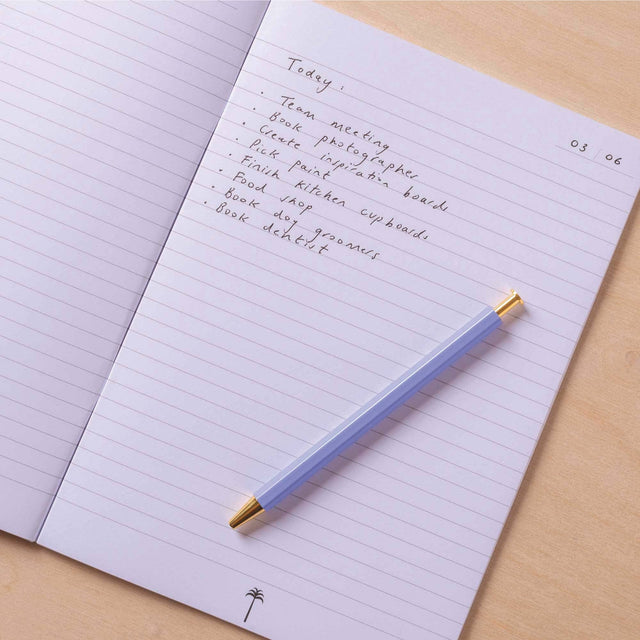 Today:
03 | 06
• Team meeting
• Book photographer
• Create inspiration boards
• Pick paint
• Finish kitchen cupboards
• Food shop
• Book dog groomers
• Book dentist